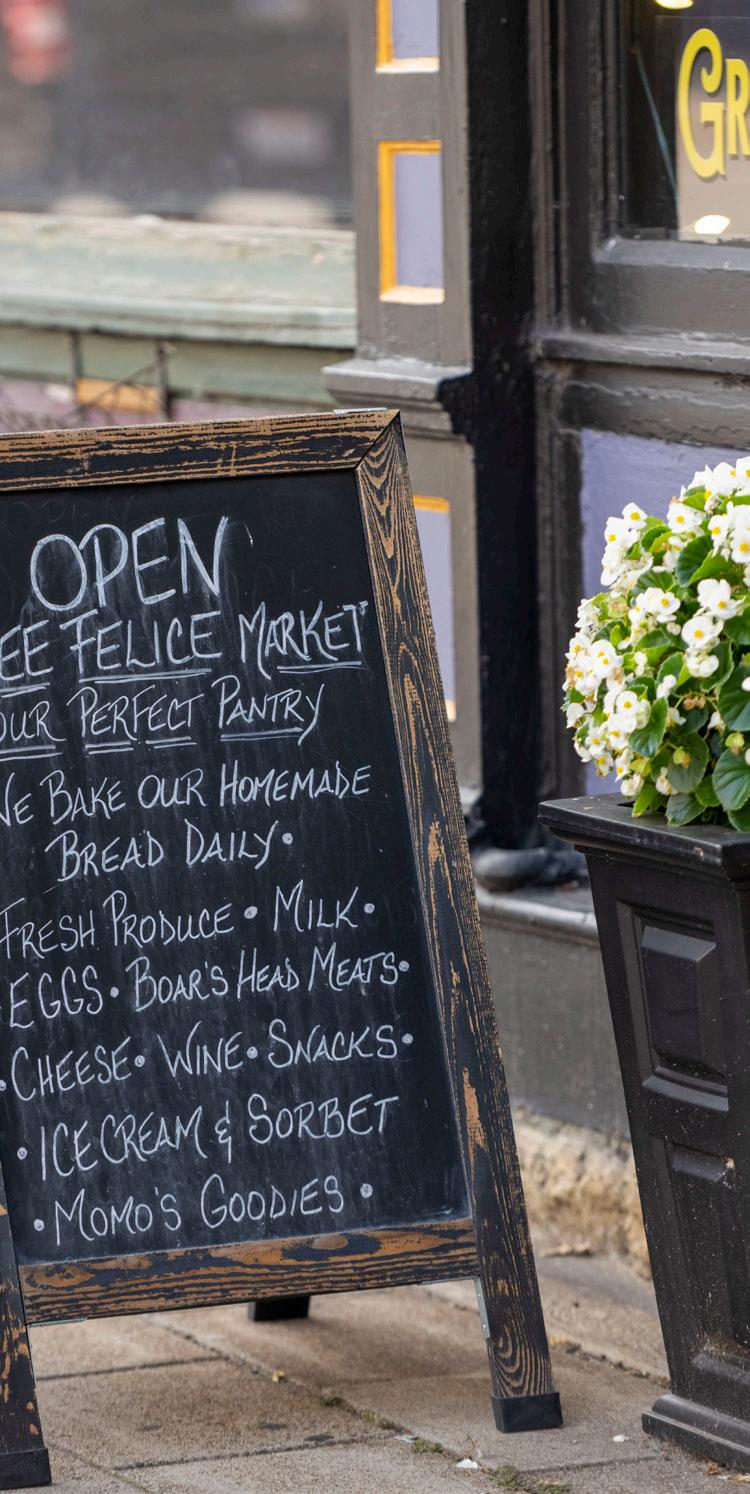 GR
OPEN
EE FELICE MARKET
OUR PERFECT PANTRY
WE BAKE OUR HOMEMADE
BREAD DAILY•
FRESH PRODUCE • MILK•
EGGS • BOAR'S HEAD MEATS•
•CHEESE• WINE• SNACKS•
•ICE CREAM & SORBET
•MOMO'S GOODIES •